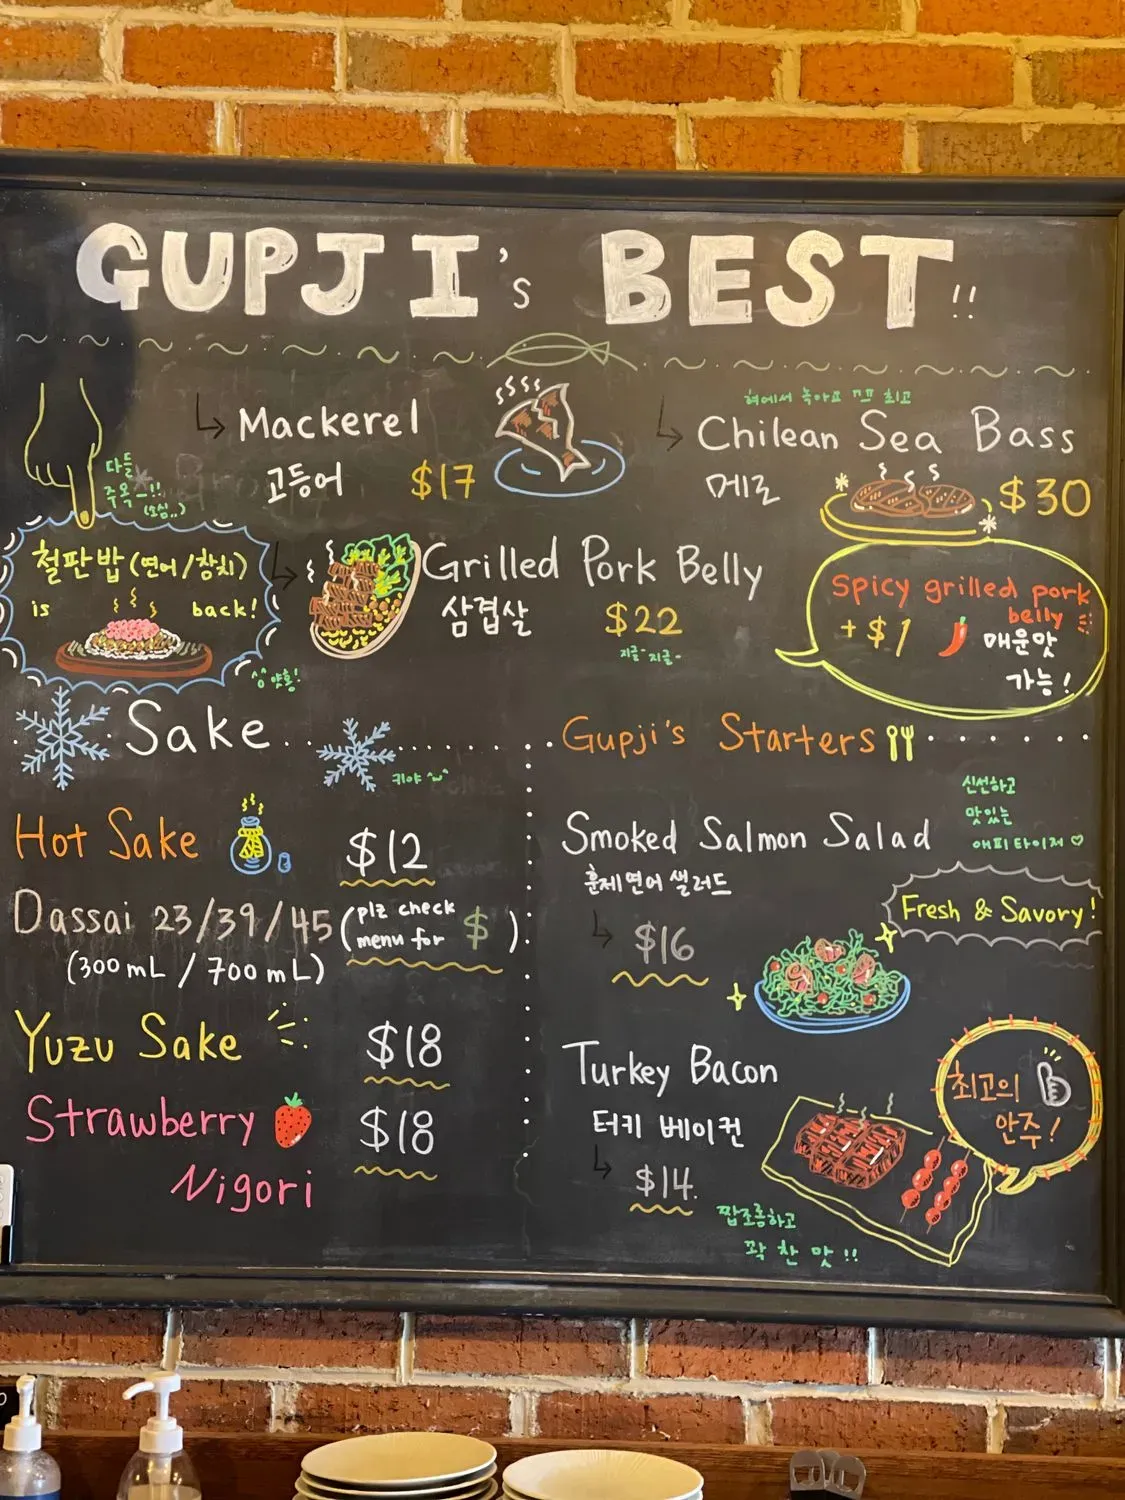 GUPJI's BEST!!
Mackerel
고등어 $17
혀에서 녹아요
최고
Chilean Sea Bass
메로 $30
다들
주목-!!
(소심..)
철판밥 (연어/참치)
is back!
Grilled Pork Belly
삼겹살 $22
지글-지글-
Spicy grilled pork
belly
+$1 매운맛
가능!
Sake
키야
Hot Sake $12
Dassai 23/39/45 (plz check
menu for $)
(300mL / 700mL)
Yuzu Sake $18
Strawberry $18
Nigori
Gupji's Starters
신선하고
맛있는
애피타이저♡
Smoked Salmon Salad
훈제연어 샐러드
$16
Fresh & Savory!
Turkey Bacon
터키 베이컨
$14.
최고의
안주!
짭조름하고
꽉 찬 맛!!